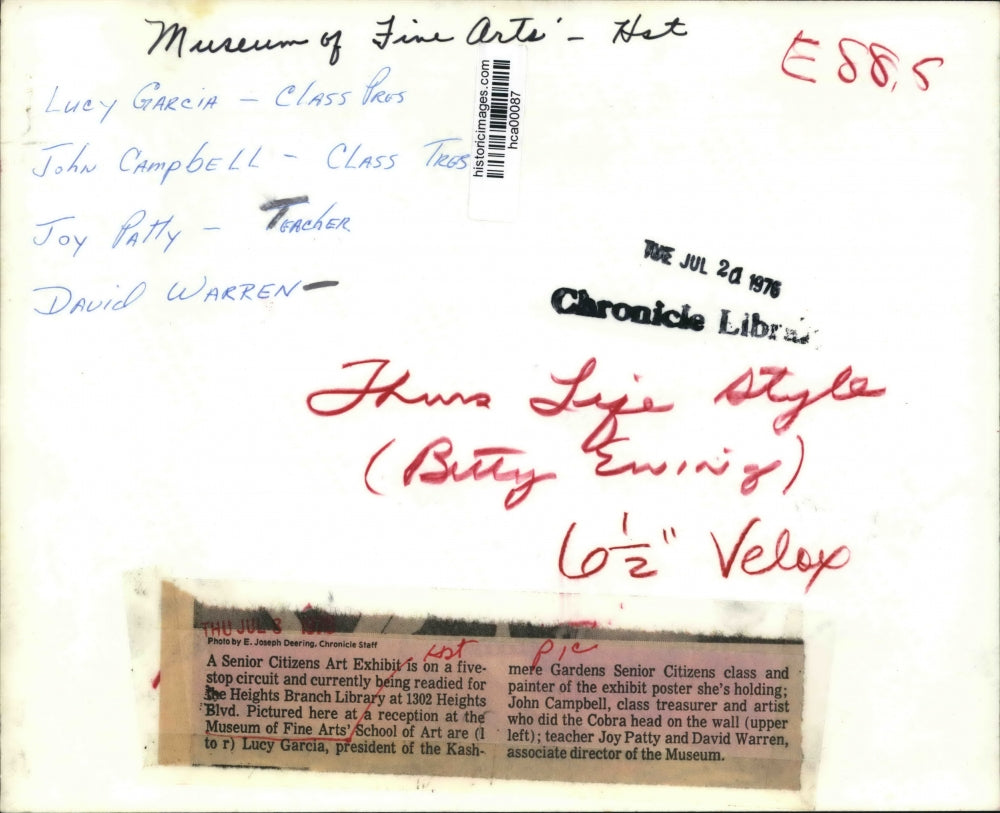 Museum of Fine Arts' - Hst
E 88,5
Lucy Garcia - Class Pres
John Campbell - Class Tres
Joy Patty - Teacher
David Warren -
historicimages.com
hca00087
TUE JUL 20 1976
Chronicle Library
Thurs Life Style
(Betty Ewing)
6 1/2" Velox
THU JUL 8
Photo by E. Joseph Deering, Chronicle Staff
Hst pic
A Senior Citizens Art Exhibit is on a five-
stop circuit and currently being readied for
the Heights Branch Library at 1302 Heights
Blvd. Pictured here at a reception at the
Museum of Fine Arts' School of Art are (l
to r) Lucy Garcia, president of the Kash-
mere Gardens Senior Citizens class and
painter of the exhibit poster she's holding;
John Campbell, class treasurer and artist
who did the Cobra head on the wall (upper
left); teacher Joy Patty and David Warren,
associate director of the Museum.